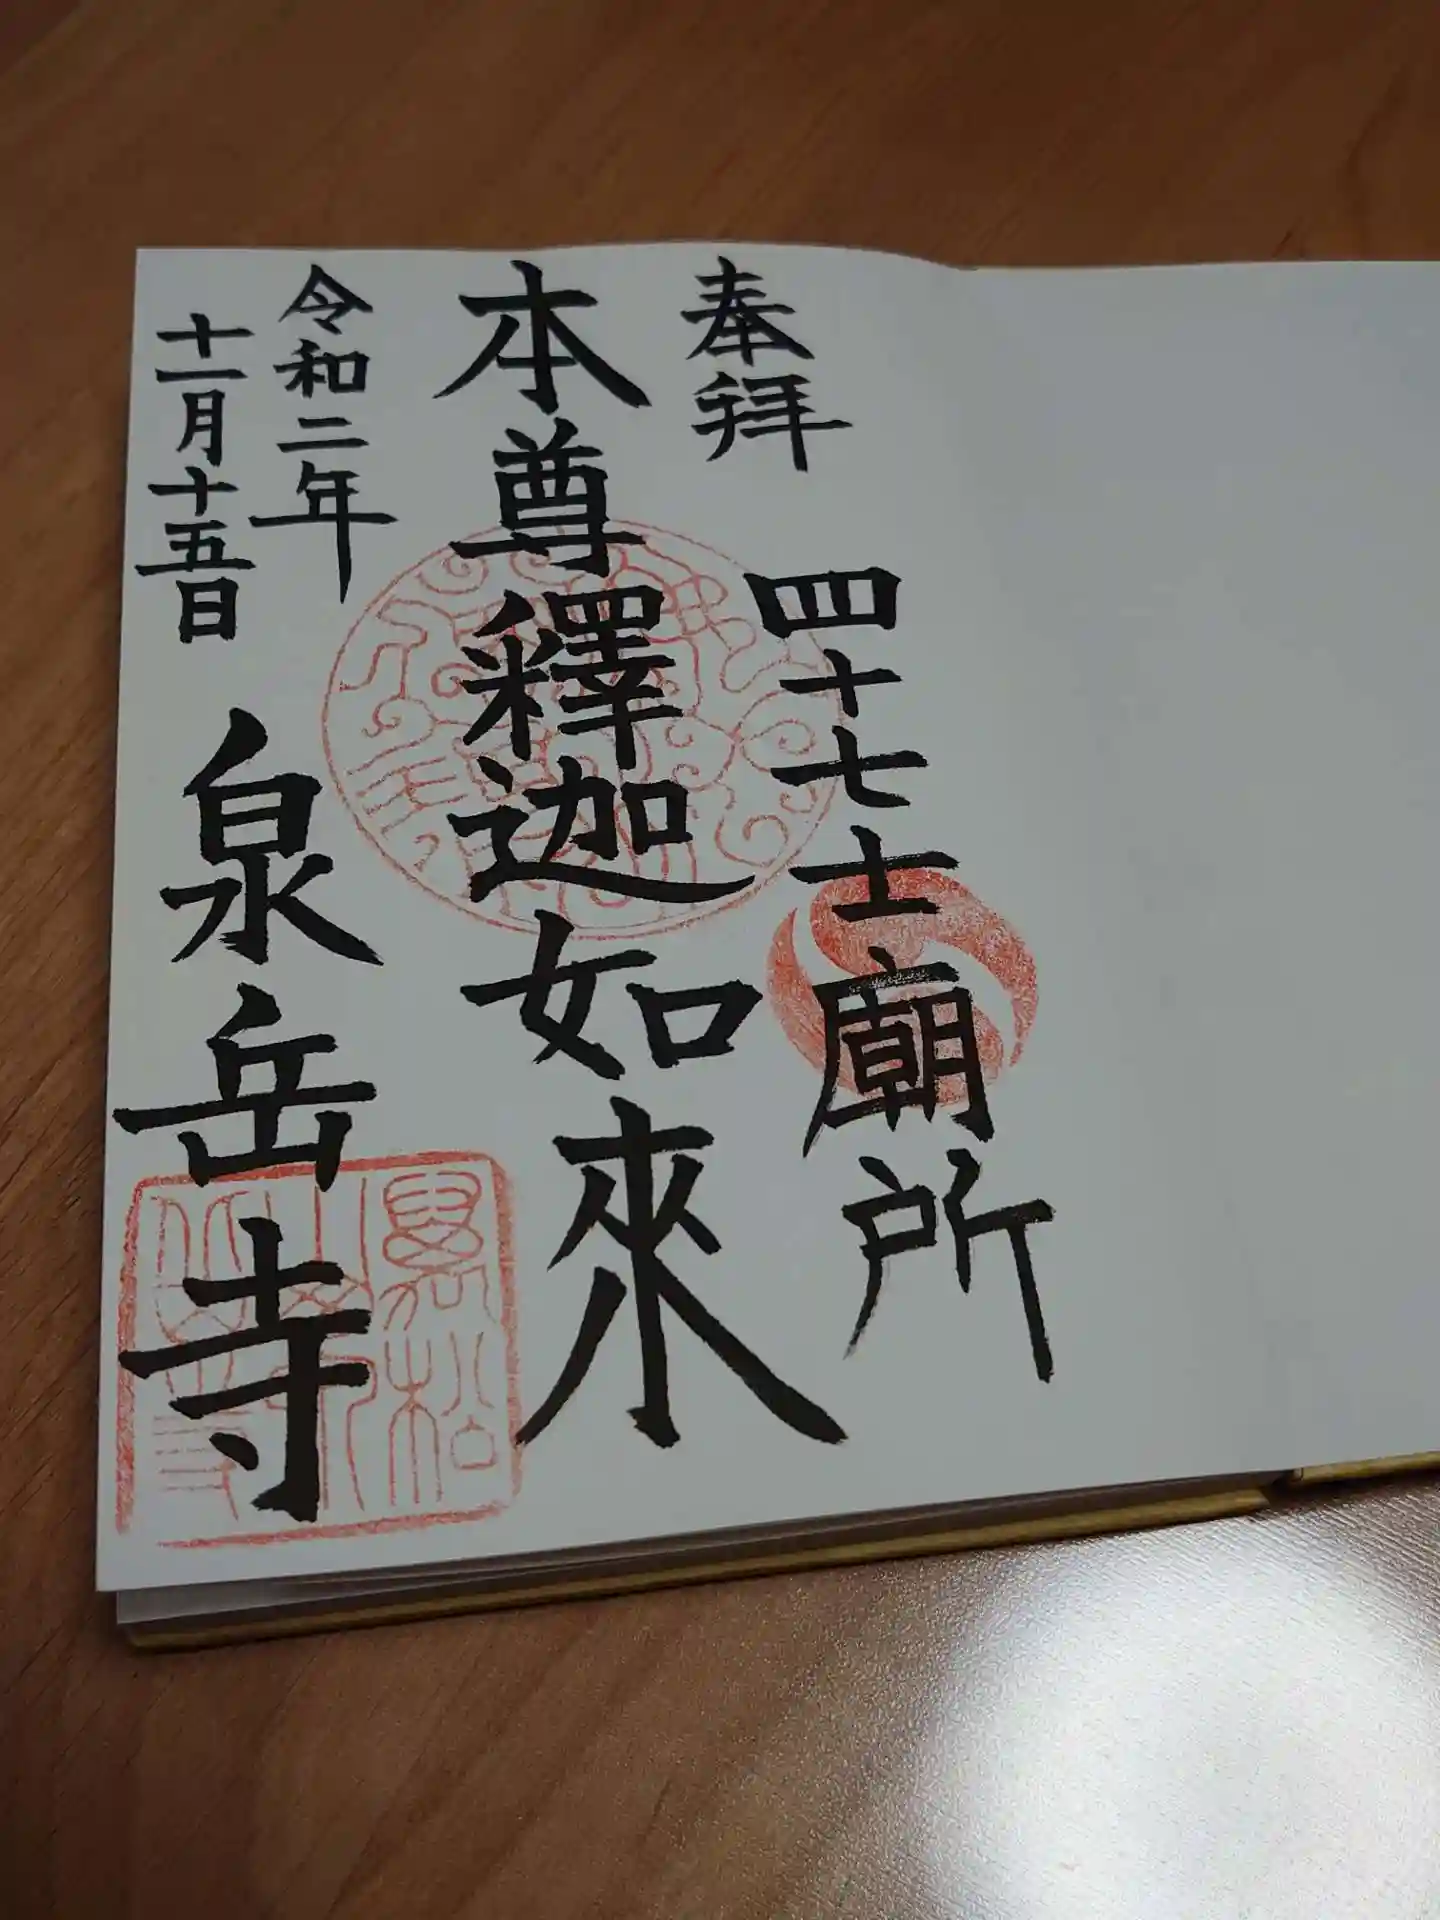 奉拜
四十七士廟所
本尊釋迦如來
令和二年
十一月十五日
泉岳寺